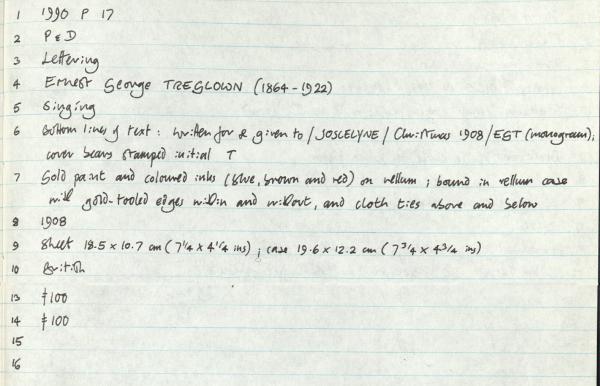 1 1990 P 17
2 P & D
3 Lettering
4 Ernest George TREGLOWN (1864-1922)
5 Singing
6 Bottom lines of text: written for & given to / JOSCELYNE / Christmas 1908 / EGT (monogram);
cover bears stamped initial T
7 Gold paint and coloured inks (blue, brown and red) on vellum; bound in vellum case
with gold-tooled edges within and without, and cloth ties above and below
8 1908
9 Sheet 18.5 x 10.7 cm (7 1/4 x 4 1/4 ins); case 19.6 x 12.2 cm (7 3/4 x 4 3/4 ins)
10 British
13 £100
14 £100
15
16